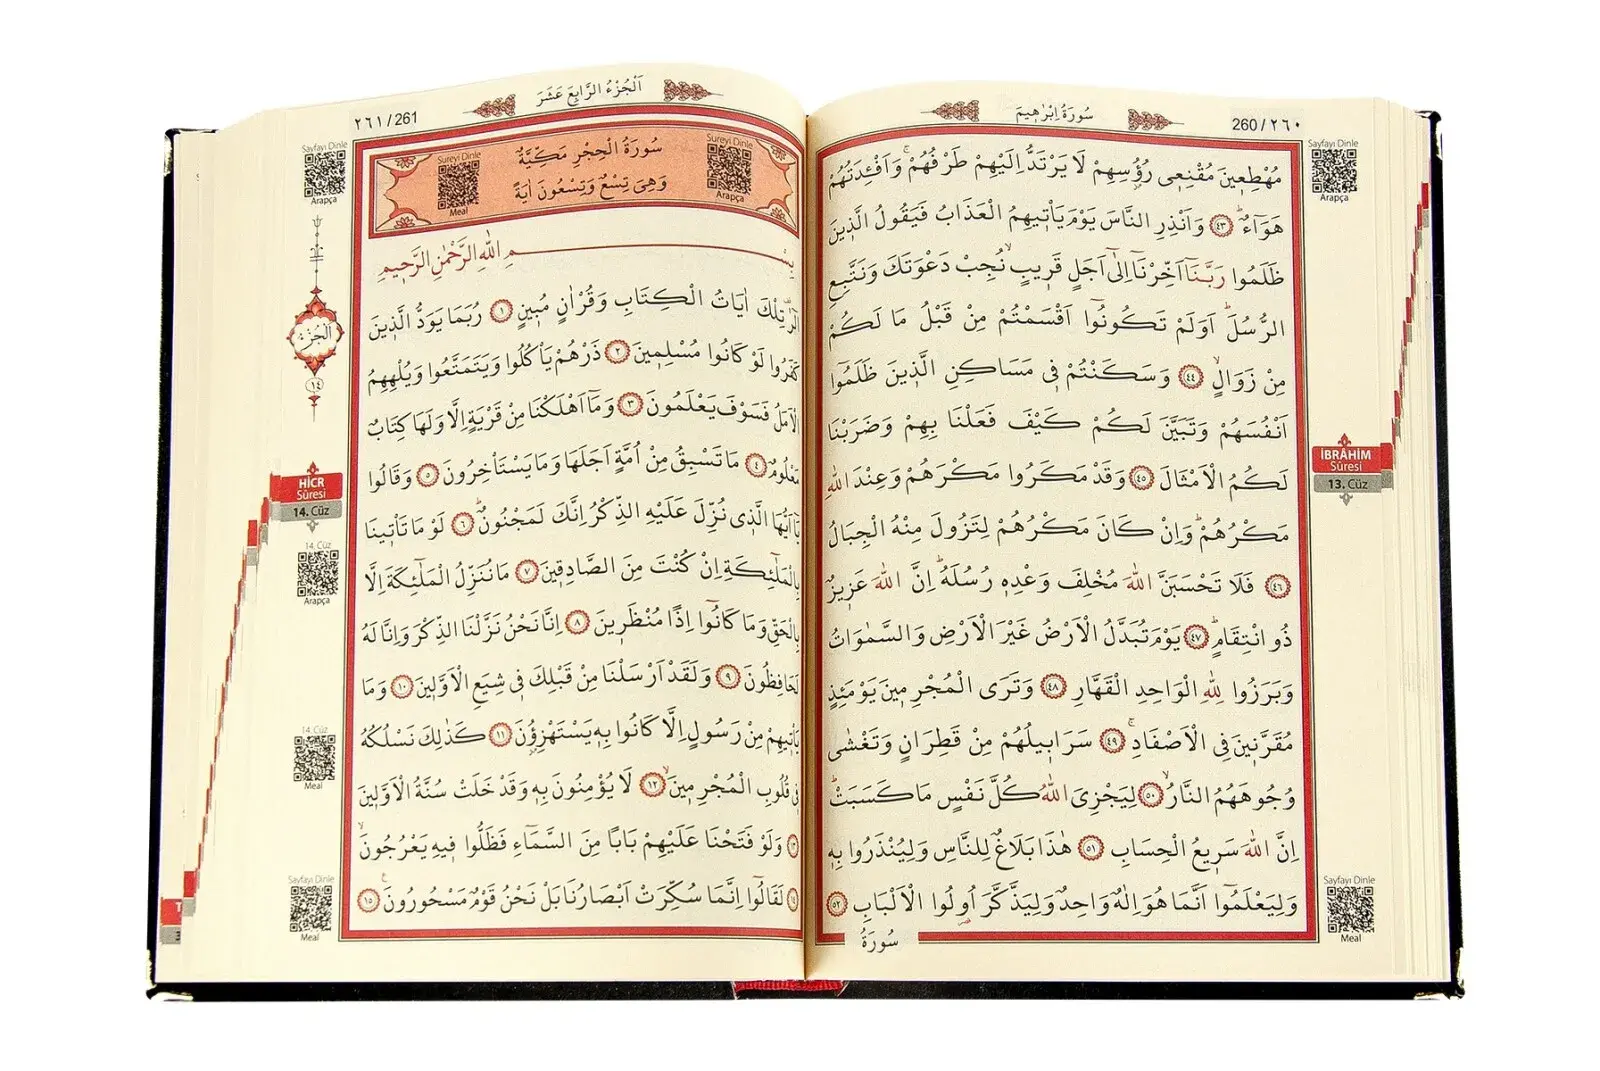 سُورَةُ اِبْرٰهِيمَ
260/٢٦٠
مُهْطِعٖينَ مُقْنِعٖى رُؤُ۫سِهِمْ لَا يَرْتَدُّ اِلَيْهِمْ طَرْفُهُمْۚ وَاَفْـِٔدَتُهُمْ
هَوَٓاءٌؕ ﴿٤٣﴾ وَاَنْذِرِ النَّاسَ يَوْمَ يَأْتٖيهِمُ الْعَذَابُ فَيَقُولُ الَّذٖينَ
ظَلَمُوا رَبَّنَٓا اَخِّرْنَٓا اِلٰٓى اَجَلٍ قَرٖيبٍۙ نُجِبْ دَعْوَتَكَ وَنَتَّبِعِ
الرُّسُلَؕ اَوَلَمْ تَكُونُٓوا اَقْسَمْتُمْ مِنْ قَبْلُ مَا لَكُمْ
مِنْ زَوَالٍۙ ﴿٤٤﴾ وَسَكَنْتُمْ فٖى مَسَاكِنِ الَّذٖينَ ظَلَمُٓوا
اَنْفُسَهُمْ وَتَبَيَّنَ لَكُمْ كَيْفَ فَعَلْنَا بِهِمْ وَضَرَبْنَا
لَكُمُ الْاَمْثَالَ ﴿٤٥﴾ وَقَدْ مَكَرُوا مَكْرَهُمْ وَعِنْدَ اللّٰهِ
مَكْرُهُمْؕ وَاِنْ كَانَ مَكْرُهُمْ لِتَزُولَ مِنْهُ الْجِبَالُ
﴿٤٦﴾ فَلَا تَحْسَبَنَّ اللّٰهَ مُخْلِفَ وَعْدِهٖ رُسُلَهُؕ اِنَّ اللّٰهَ عَزٖيزٌ
ذُو انْتِقَامٍؕ ﴿٤٧﴾ يَوْمَ تُبَدَّلُ الْاَرْضُ غَيْرَ الْاَرْضِ وَالسَّمٰوَاتُ
وَبَرَزُوا لِلّٰهِ الْوَاحِدِ الْقَهَّارِ ﴿٤٨﴾ وَتَرَى الْمُجْرِمٖينَ يَوْمَئِذٍ
مُقَرَّنٖينَ فِى الْاَصْفَادِۚ ﴿٤٩﴾ سَرَابٖيلُهُمْ مِنْ قَطِرَانٍ وَتَغْشٰى
وُجُوهَهُمُ النَّارُۙ ﴿٥٠﴾ لِيَجْزِىَ اللّٰهُ كُلَّ نَفْسٍ مَا كَسَبَتْؕ
اِنَّ اللّٰهَ سَرٖيعُ الْحِسَابِ ﴿٥١﴾ هٰذَا بَلَاغٌ لِلنَّاسِ وَلِيُنْذَرُوا بِهٖ
وَلِيَعْلَمُٓوا اَنَّمَا هُوَ اِلٰهٌ وَاحِدٌ وَلِيَذَّكَّرَ اُو۬لُوا الْاَلْبَابِ ﴿٥٢﴾
سُورَةُ
Sayfayı Dinle
Arapça
İBRÂHİM
Sûresi
13. Cüz
Sayfayı Dinle
Meal
اَلْجُزْءُ الرَّابِعَ عَشَرَ
٢٦١/261
سُورَةُ الْحِجْرِ مَكِّيَّةٌ
وَهِىَ تِسْعٌ وَتِسْعُونَ اٰيَةً
Sureyi Dinle
Arapça
Sureyi Dinle
Meal
بِسْمِ اللّٰهِ الرَّحْمٰنِ الرَّحٖيمِ
الٓرٰ تِلْكَ اٰيَاتُ الْكِتَابِ وَقُرْاٰنٍ مُبٖينٍ ﴿١﴾ رُبَمَا يَوَدُّ الَّذٖينَ
كَفَرُوا لَوْ كَانُوا مُسْلِمٖينَ ﴿٢﴾ ذَرْهُمْ يَأْكُلُوا وَيَتَمَتَّعُوا وَيُلْهِهِمُ
الْاَمَلُ فَسَوْفَ يَعْلَمُونَ ﴿٣﴾ وَمَٓا اَهْلَكْنَا مِنْ قَرْيَةٍ اِلَّا وَلَهَا كِتَابٌ
مَعْلُومٌ ﴿٤﴾ مَا تَسْبِقُ مِنْ اُمَّةٍ اَجَلَهَا وَمَا يَسْتَأْخِرُونَ ﴿٥﴾ وَقَالُوا
يَٓا اَيُّهَا الَّذٖى نُزِّلَ عَلَيْهِ الذِّكْرُ اِنَّكَ لَمَجْنُونٌؕ ﴿٦﴾ لَوْ مَا تَأْتٖينَا
بِالْمَلٰٓئِكَةِ اِنْ كُنْتَ مِنَ الصَّادِقٖينَ ﴿٧﴾ مَا نُنَزِّلُ الْمَلٰٓئِكَةَ اِلَّا
بِالْحَقِّ وَمَا كَانُٓوا اِذًا مُنْظَرٖينَ ﴿٨﴾ اِنَّا نَحْنُ نَزَّلْنَا الذِّكْرَ وَاِنَّا لَهُ
لَحَافِظُونَ ﴿٩﴾ وَلَقَدْ اَرْسَلْنَا مِنْ قَبْلِكَ فٖى شِيَعِ الْاَوَّلٖينَ ﴿١٠﴾ وَمَا
يَأْتٖيهِمْ مِنْ رَسُولٍ اِلَّا كَانُوا بِهٖ يَسْتَهْزِؤُ۫نَ ﴿١١﴾ كَذٰلِكَ نَسْلُكُهُ
فٖى قُلُوبِ الْمُجْرِمٖينَۙ ﴿١٢﴾ لَا يُؤْمِنُونَ بِهٖ وَقَدْ خَلَتْ سُنَّةُ الْاَوَّلٖينَ
﴿١٣﴾ وَلَوْ فَتَحْنَا عَلَيْهِمْ بَابًا مِنَ السَّمَٓاءِ فَظَلُّوا فٖيهِ يَعْرُجُونَۙ
﴿١٤﴾ لَقَالُٓوا اِنَّمَا سُكِّرَتْ اَبْصَارُنَا بَلْ نَحْنُ قَوْمٌ مَسْحُورُونَۚ ﴿١٥﴾
Sayfayı Dinle
Arapça
اَلْجُزْءُ
١٤
HİCR
Sûresi
14. Cüz
14. Cüz
Arapça
14. Cüz
Meal
Sayfayı Dinle
Meal